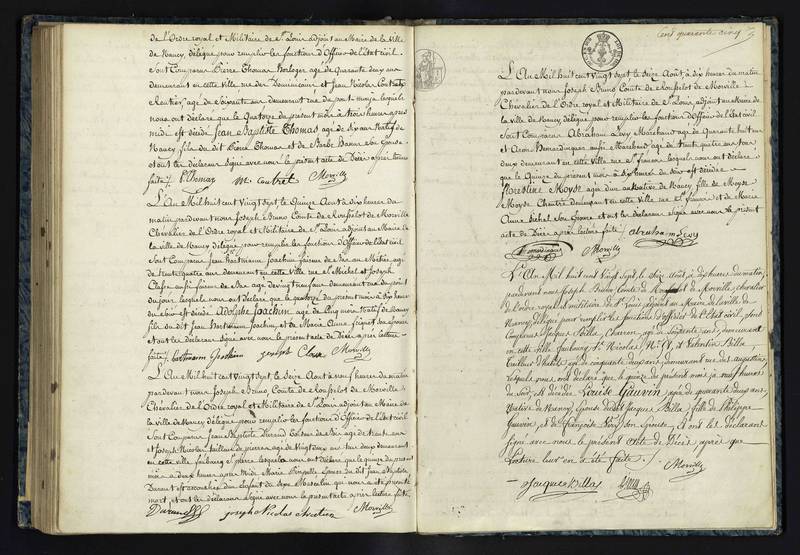 de l'Ordre royal et Militaire de St. Louis adjoint au Maire de la ville
de Nancy, délégué pour remplir les fonctions d'Officier de l'état civil.
Sont Comparus Pierre Thomas Horloger agé de Quarante deux ans
demeurant en cette ville rue des Dominicains et Jean Nicolas
Rentier agé de soixante ans demeurant rue du lesquels
nous ont déclaré que le Quatorze du présent mois à trois heures après
midi est décédé Jean Baptiste Thomas agé de dix ans Natif de
Nancy fils du dit Pierre Thomas et de Barbe son Epouse
et ont les déclarans signé avec nous le présent acte de Décès après lecture
faite / Thomas Morville
L'An Mil huit cent Vingt Sept le Quinze Août à dix heures du
matin pardevant nous Joseph Bruno Comte de Rousselot de Morville
Chevalier de l'Ordre royal et Militaire de St. Louis adjoint au Maire de
la ville de Nancy délégué pour remplir les fonctions d'Officier de l'état civil
Sont Comparus Jean Joachim faiseur de Bas au Métier agé
de trente quatre ans demeurant en cette ville rue St. Michel et Joseph
aussi faiseur de Bas agé de vingt neuf ans demeurant rue du pont
lesquels nous ont déclaré que le quatorze du présent mois à dix heures
du soir est décédé Adolphe Joachim agé de Cinq mois natif de Nancy
fils du dit Jean Joachim et de Marie Anne son épouse
et ont les déclarans signé avec nous le présent acte de Décès après lecture
faite / Joachim joseph Morville
L'An Mil huit cent Vingt Sept le Seize Août à neuf heures du matin
pardevant nous Joseph Bruno Comte de Rousselot de Morville
Chevalier de l'Ordre royal et Militaire de St. Louis adjoint au Maire de
la Ville de Nancy délégué pour remplir les fonctions d'Officier de l'état civil
Sont Comparus Jean Baptiste Durand agé de trente
et Joseph Nicolas tailleur de pierres agé de Vingt ans demeurant
en cette ville faubourg St. pierre lesquels nous ont déclaré que le quinze du présent
mois à deux heures après Midi Marie Epouse du dit Jean Baptiste
Durand est accouchée d'un enfant du Sexe Masculin qui nous a été présenté
mort, et ont les déclarans signé avec nous le présent acte après lecture faite
Durand joseph Nicolas Morville
Cent quarante cinq
L'An Mil huit cent Vingt Sept le Seize Août à dix heures du matin
pardevant nous Joseph Bruno Comte de Rousselot de Morville
Chevalier de l'Ordre royal et Militaire de St. Louis adjoint au Maire de
la ville de Nancy délégué pour remplir les fonctions d'Officier de l'état civil
Sont Comparus Abraham Lévy Marchand agé de Quarante huit ans
et Aron aussi Marchand agé de trente quatre ans tous
deux demeurant en cette ville rue St. lesquels nous ont déclaré
que le Quinze du présent mois à dix heures du soir est décédée
Florestine Moyse agée d'un an Native de Nancy fille de Moyse
Moyse Chantre demeurant en cette ville rue St. et de Marie
Anne Michel son Epouse et ont les déclarans signé avec nous le présent
acte de Décès après lecture faite / abraham Levy
Morville
L'An Mil huit cent Vingt Sept, le Seize Août, à dix heures du matin,
pardevant nous Joseph Bruno, Comte de Rousselot de Morville, chevalier
de l'ordre royal et militaire de St. Louis, adjoint au Maire de la ville de
Nancy, délégué pour remplir les fonctions d'officier de l'Etat civil, sont
Comparus Jacques Billa, Charron, agé de soixante ans, demeurant
en cette ville faubourg St. Nicolas No. et Valentin Billa,
Tailleur d'habits, agé de cinquante deux ans, demeurant rue des augustins,
lesquels nous ont déclaré que le quinze du présent mois, à neuf heures
du soir, est décédée Louise Gauvin, agée de quarante deux ans,
native de Nancy, épouse dudit Jacques Billa, fille de Philippe
Gauvin, et de Françoise son épouse, et ont les déclarans
signé avec nous le présent Acte de Décès après que
lecture leur en a été faite. /. Morville
Jacques Billa